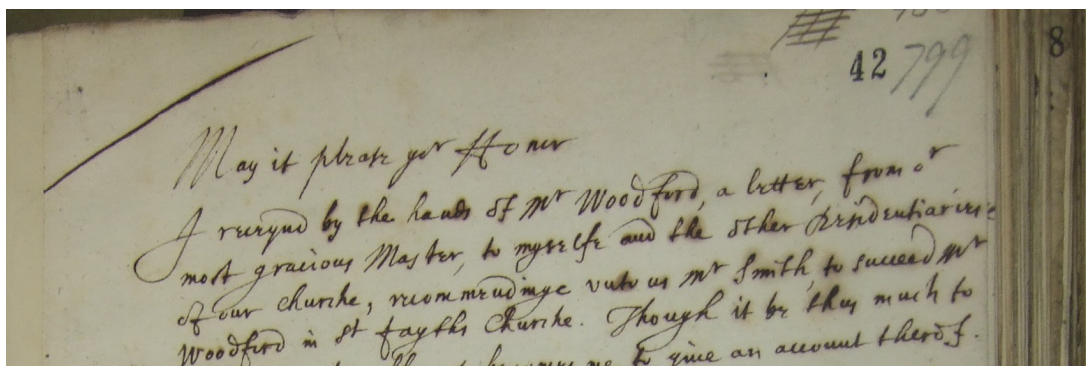 42 799
8
May it please yor Honor
I receyud by the hands of Mr Woodford, a letter, from or
most gracious Master, to myselfe and the other Residentiaries
of our Churche, recommendinge unto us Mr Smith, to succeed Mr
Woodford in St fayths Churche. Though it be thus much to
me to give an account therof.